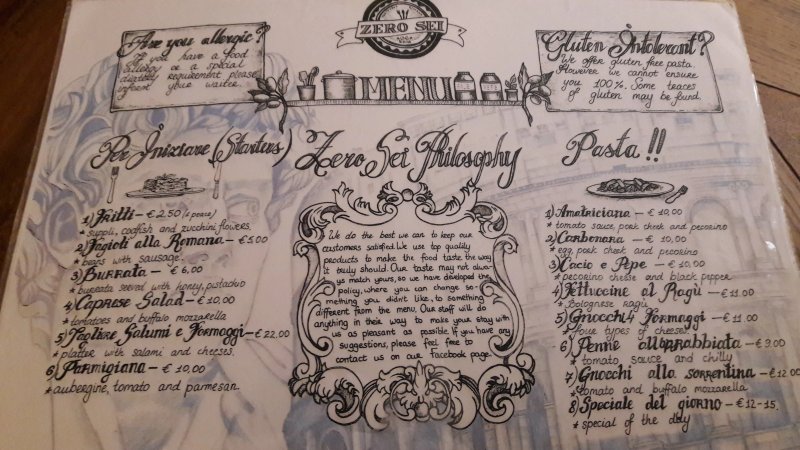 ZERO SEI
Are you allergic?
If you have a food
allergy or a special
dietary requirement please
inform your waiter.
MENU
Gluten Intolerant?
We offer gluten free pasta.
However we cannot ensure
you 100%. Some traces
of gluten may be found.
Per Iniziare (Starters)
1) Fritti - € 2.50 (a peace)
* supplì, codfish and zucchini flowers.
2) Fagioli alla Romana - € 5.00
* beans with sausage.
3) Burrata - € 6,00
* burrata seeved with honey, pistachio
4) Caprese Salad - € 10,00
* tomatoes and buffalo mozzarella
5) Tagliere Salumi e Formaggi - € 22.00
* platter with salami and cheeses.
6) Parmigiana - € 10,00
* aubergine, tomato and parmesan.
Zero Sei Philosophy
We do the best we can to keep our
customers satisfied. We use top quality
products to make the food taste the way
it truly should. Our taste may not alwa-
ys match yours, so we have developed the
policy, where you can change so-
mething you didn't like, to something
different from the menu. Our staff will do
anything in their way to make your stay with
us as pleasant as possible. If you have any
suggestions, please feel free to
contact us on our Facebook page.
Pasta !!
1) Amatriciana - € 10,00
* tomato sauce, pork cheek and pecorino
2) Carbonara - € 10,00
* egg, pork cheek and pecorino
3) Cacio e Pepe - € 10,00
* pecorino cheese and black pepper
4) Fettuccine al Ragù - € 11.00
* Bolognese Ragù
5) Gnocchi 4 Formaggi - € 11.00
* four types of cheese
6) Penne all'arrabbiata - € 9.00
* tomato sauce and chilly
7) Gnocchi alla sorrentina - € 12.00
* tomato and buffalo mozzarella
8) Speciale del giorno - € 12-15.
* special of the day